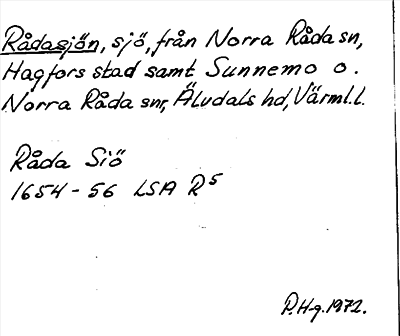 Rådasjön, sjö, från Norra Råda sn,
Hagfors stad samt Sunnemo o.
Norra Råda snr, Äludals hd, Värml.l.
Råda Siö
1654-56 LSA R5
P.H-g. 1972.